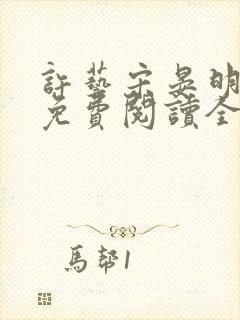 許藝宋晏明
免費閱讀全
馬幫1